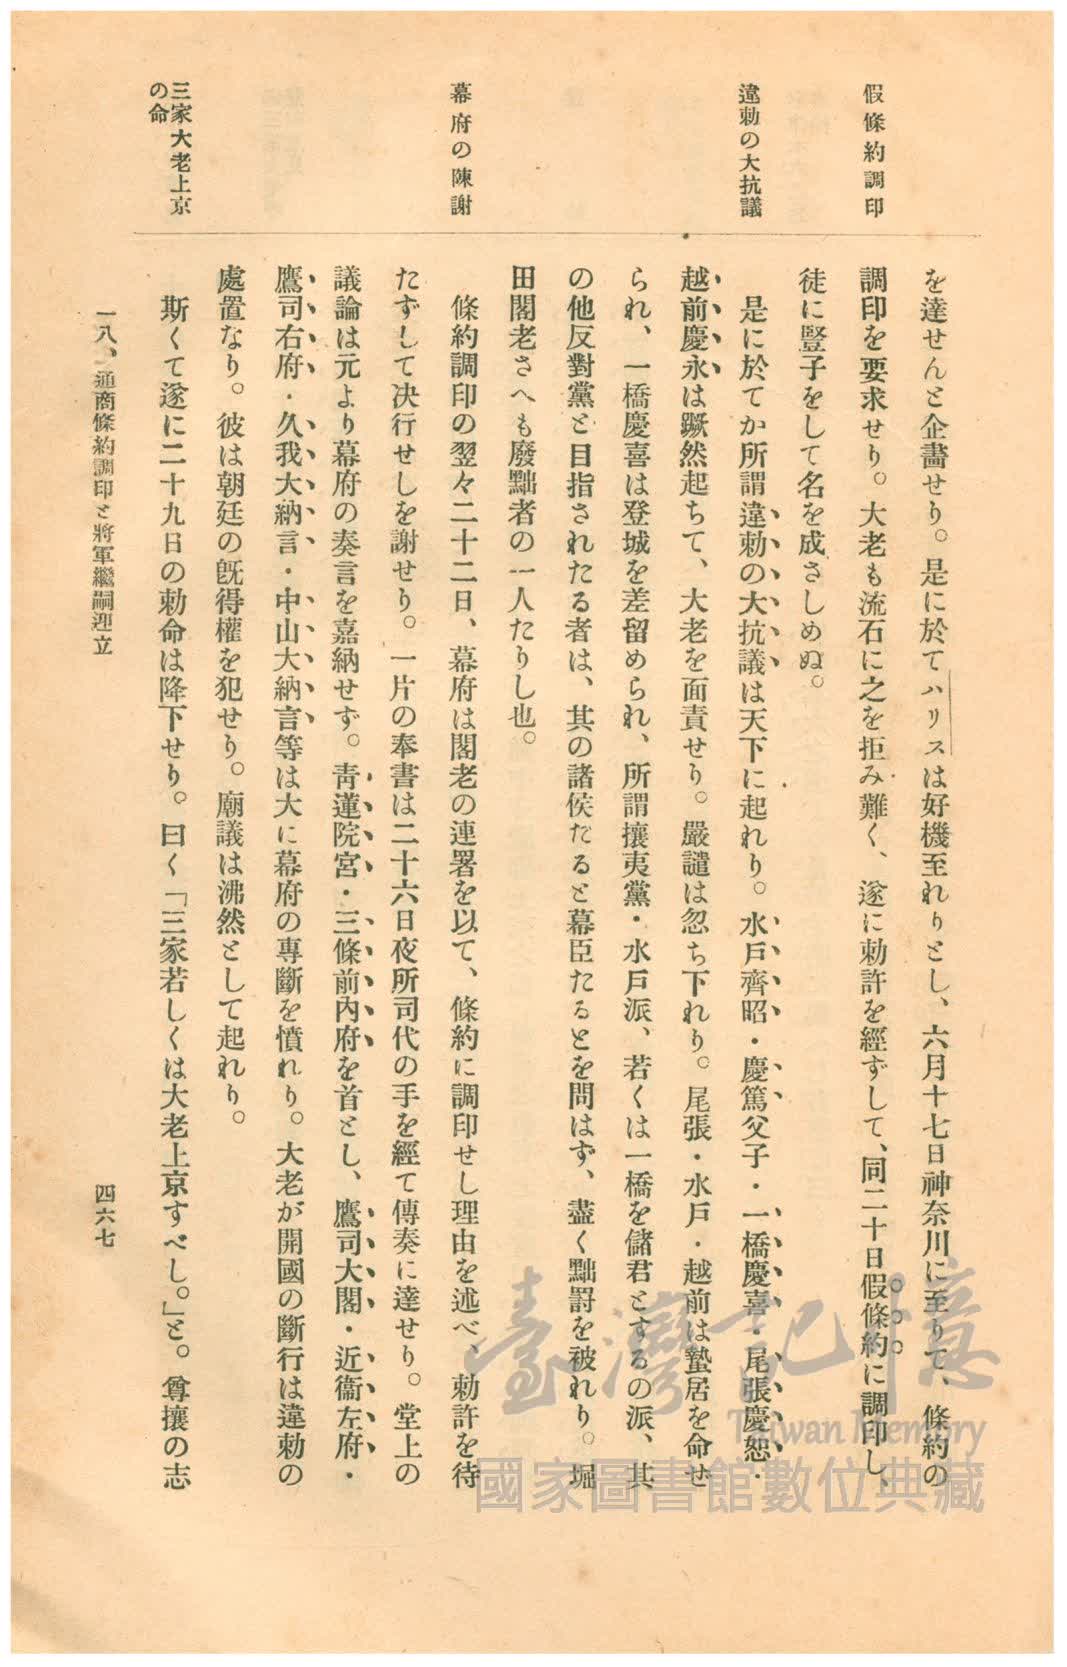 假條約調印
違勅の大抗議
幕府の陳謝
三家大老上京
の命
を達せんと企畵せり。是に於てハリスは好機至れりとし、六月十七日神奈川に至りて、條約の
調印を要求せり。大老も流石に之を拒み難く、遂に勅許を經ずして、同二十日假條約に調印し、
徒に豎子をして名を成さしめぬ。
是に於てか所謂違勅の大抗議は天下に起れり。水戸齊昭・慶篤父子・一橋慶喜・尾張慶恕・
越前慶永は蹶然起ちて、大老を面責せり。嚴譴は忽ち下れり。尾張・水戸・越前は蟄居を命せ
られ、一橋慶喜は登城を差留められ、所謂攘夷黨・水戸派、若くは一橋を儲君とするの派、其
の他反對黨と目指されたる者は、其の諸侯たると幕臣たるとを問はず、盡く黜罸を被れり。堀
田閣老さへも廢黜者の一人たりし也。
條約調印の翌々二十二日、幕府は閣老の連署を以て、條約に調印せし理由を述べ、勅許を待
たずして決行せしを謝せり。一片の奉書は二十六日夜所司代の手を經て傳奏に達せり。堂上の
議論は元より幕府の奏言を嘉納せず。靑蓮院宮・三條前內府を首とし、鷹司大閤・近衞左府・
鷹司右府・久我大納言・中山大納言等は大に幕府の專斷を憤れり。大老が開國の斷行は違勅の
處置なり。彼は朝廷の旣得權を犯せり。廟議は沸然として起れり。
斯くて遂に二十九日の勅命は降下せり。曰く「三家若しくは大老上京すべし。」と。尊攘の志
一八、通商條約調印と將軍繼嗣迎立
四六七
臺灣記憶
Taiwan Memory
國家圖書館數位典藏